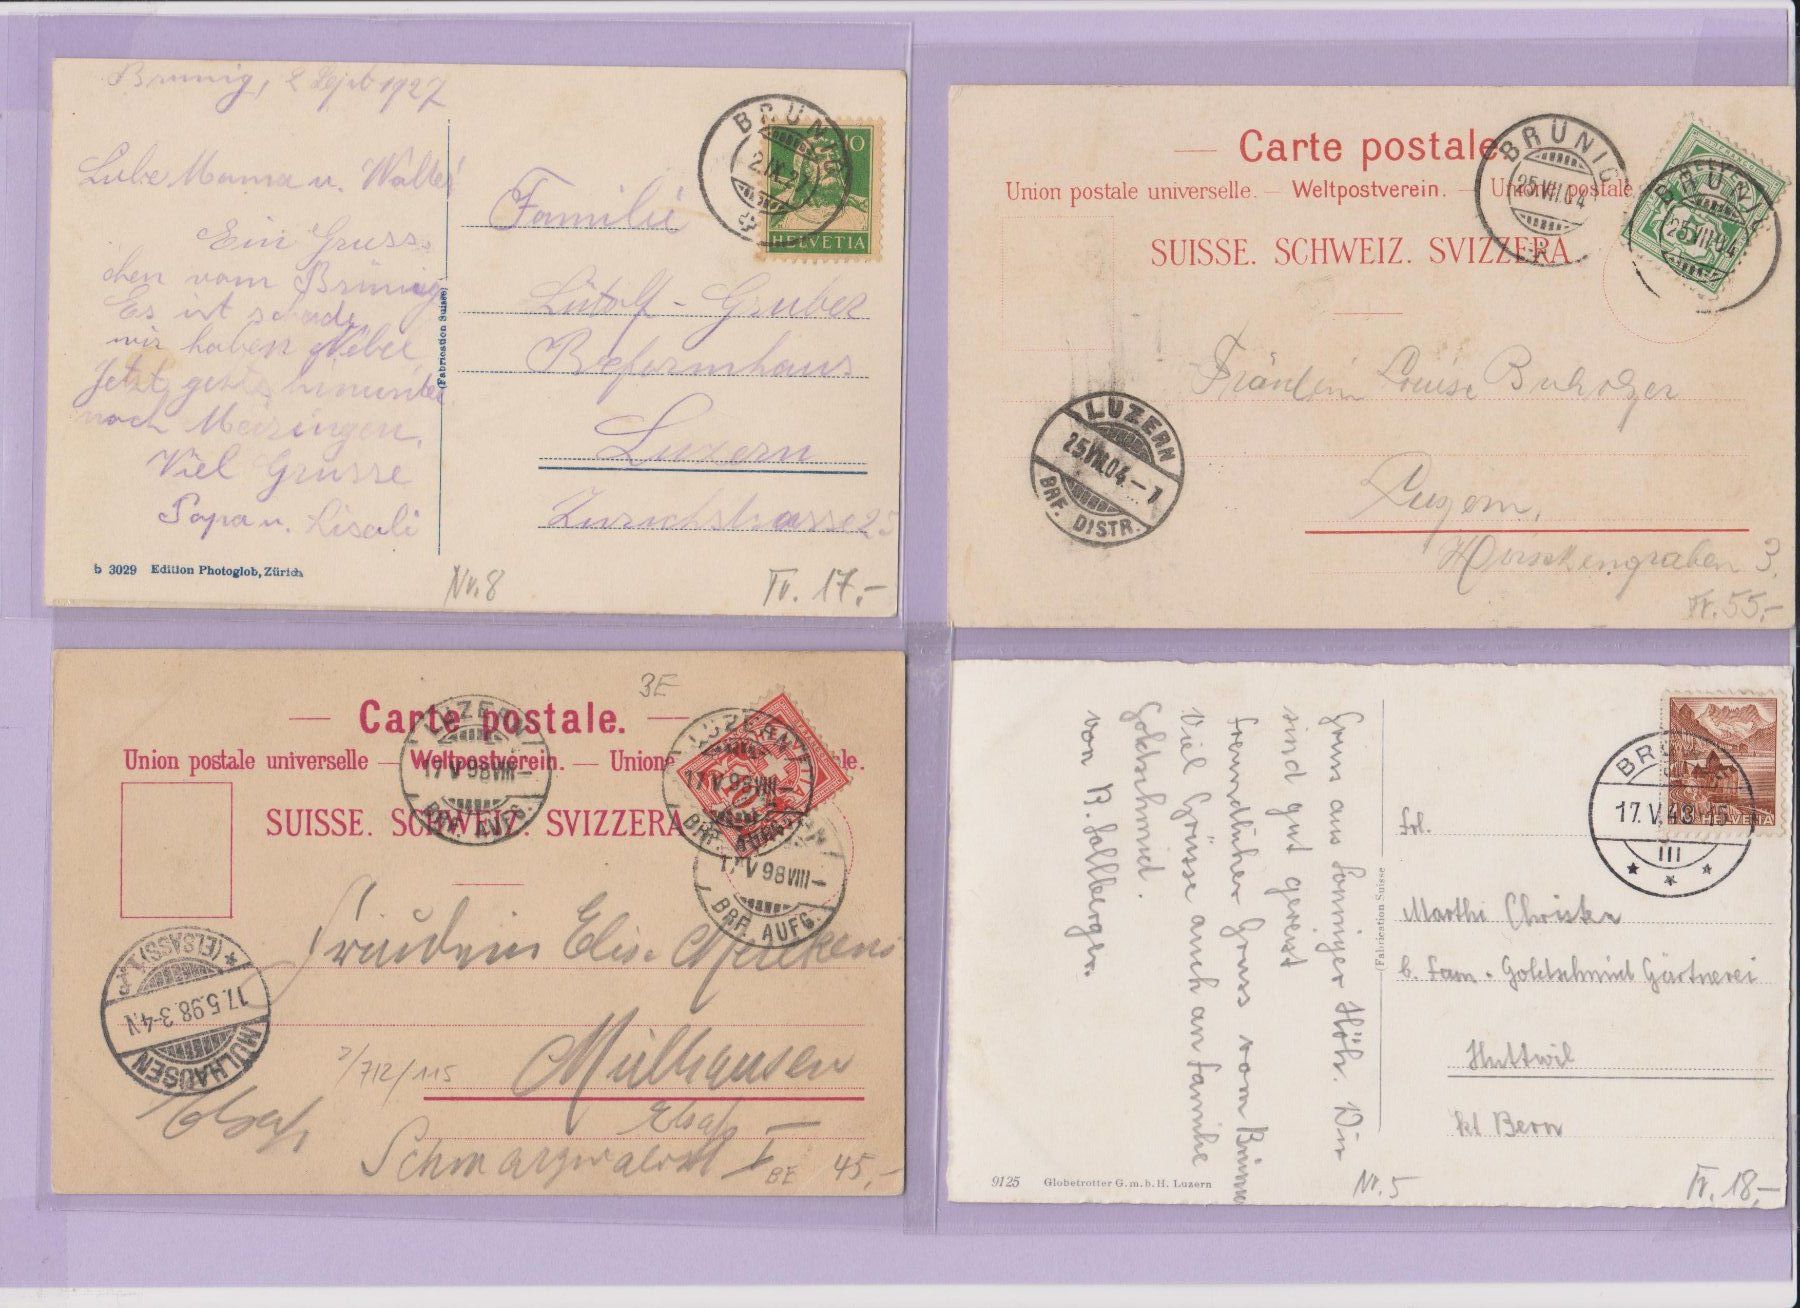 Brünig, 2 Sept 1927
Liebe Mama u. Walter
Ein Grüss-
chen vom Brünig
Es ist schade
wir haben Nebel
Jetzt gehts hinunter
nach Meiringen.
Viel Grüsse
Papa u. Lisali
b 3029 Edition Photoglob, Zürich
(Fabrication Suisse)
BRÜNIG
2.IX.27
10
HELVETIA
Familie
Lütolf-Gruber
Reformhaus
Luzern
Zürichstrasse 25
Nr. 8
Fr. 17.-
— Carte postale
Union postale universelle. — Weltpostverein. — Union postale
SUISSE. SCHWEIZ. SVIZZERA
BRÜNIG
25.VII.04
BRÜNIG
25.VII.04
HELVETIA
5
LUZERN
25.VII.04.-7
BRF. DISTR.
Fräulein Louise Bucholzer
Luzern,
Hirschengraben 3.
Fr. 55.-
3E
— Carte postale.
Union postale universelle — Weltpostverein. — Union
SUISSE. SCHWEIZ. SVIZZERA
LUZERN
17.V.98 VIII-
BRF. AUFG.
LUZERN
17.V.98 VIII-
BRF.
17.V 98 VIII-
BRF. AUFG.
MÜLHAUSEN
17.5.98.3-4.N
*(ELSASS)1.*
Fräulein Elise Merkens
Mülhausen
7/712/115
Elsaß,
Elsaß
I
BE
45.-
Gruss aus sonniger Höh. Wir
sind gut gereist
Freundlicher Gruss vom Brünig
Viel Grüsse auch an Familie
Goldschmid.
von B.
(Fabrication Suisse
9125 Globetrotter G.m.b.H. Luzern
17.V.48.15
III
HELVETIA
Frl.
Marthi Christen
b. Fam. Goldschmid Gärtnerei
Huttwil
kt Bern
Nr. 5
Fr. 18.-